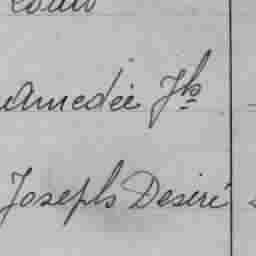 Louis
Amedée Jh
Joseph Desiré